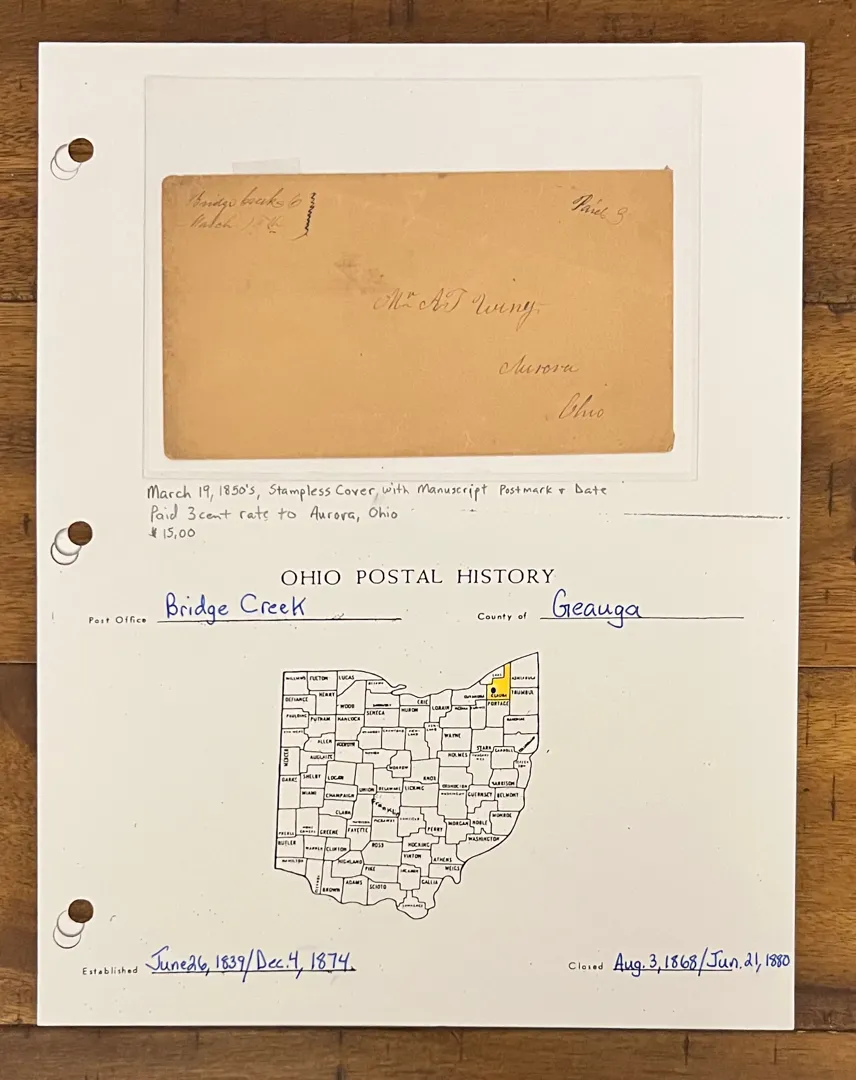 Bridge Creek O
March 19th
Paid 3
Mr A T Wing
Aurora
Ohio
March 19, 1850's, Stampless Cover, with Manuscript Postmark & Date
Paid 3cent rate to Aurora, Ohio
$15.00
OHIO POSTAL HISTORY
Post Office Bridge Creek County of Geauga
WILLIAMS FULTON LUCAS
LAKE ASHTABULA
GEAUGA TRUMBUL
DEFIANCE HENRY WOOD ERIE LORAIN PORTAGE
PAULDING PUTNAM HANCOCK SENECA HURON
ALLEN WAYNE STARK CARROLL
MERCER AUGLAIZE HOLMES
DARKE SHELBY LOGAN MORROW KNOX HARRISON
MIAMI CHAMPAIGN UNION DELAWARE LICKING GUERNSEY BELMONT
CLARK Franklin
PREBLE GREENE FAYETTE PERRY MORGAN NOBLE MONROE
BUTLER WARREN CLINTON ROSS HOCKING WASHINGTON
HAMILTON HIGHLAND PIKE VINTON ATHENS
MEIGS
BROWN ADAMS SCIOTO GALLIA
Established June 26, 1839/Dec. 4, 1874. Closed Aug. 3, 1868/Jun. 21, 1880